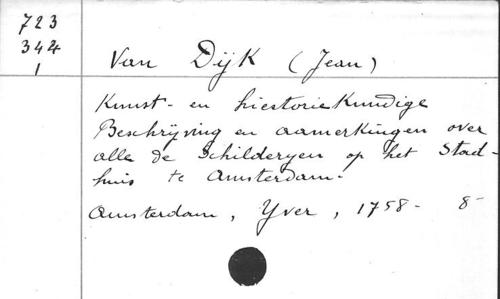 723
344
1
Van Dijk (Jean)
Kunst- en hiestorie Kundige
Beschrijving en aamerkingen over
alle de Schilderyen op het Stad-
huis te Amsterdam.
Amsterdam, Yver, 1758- 8-